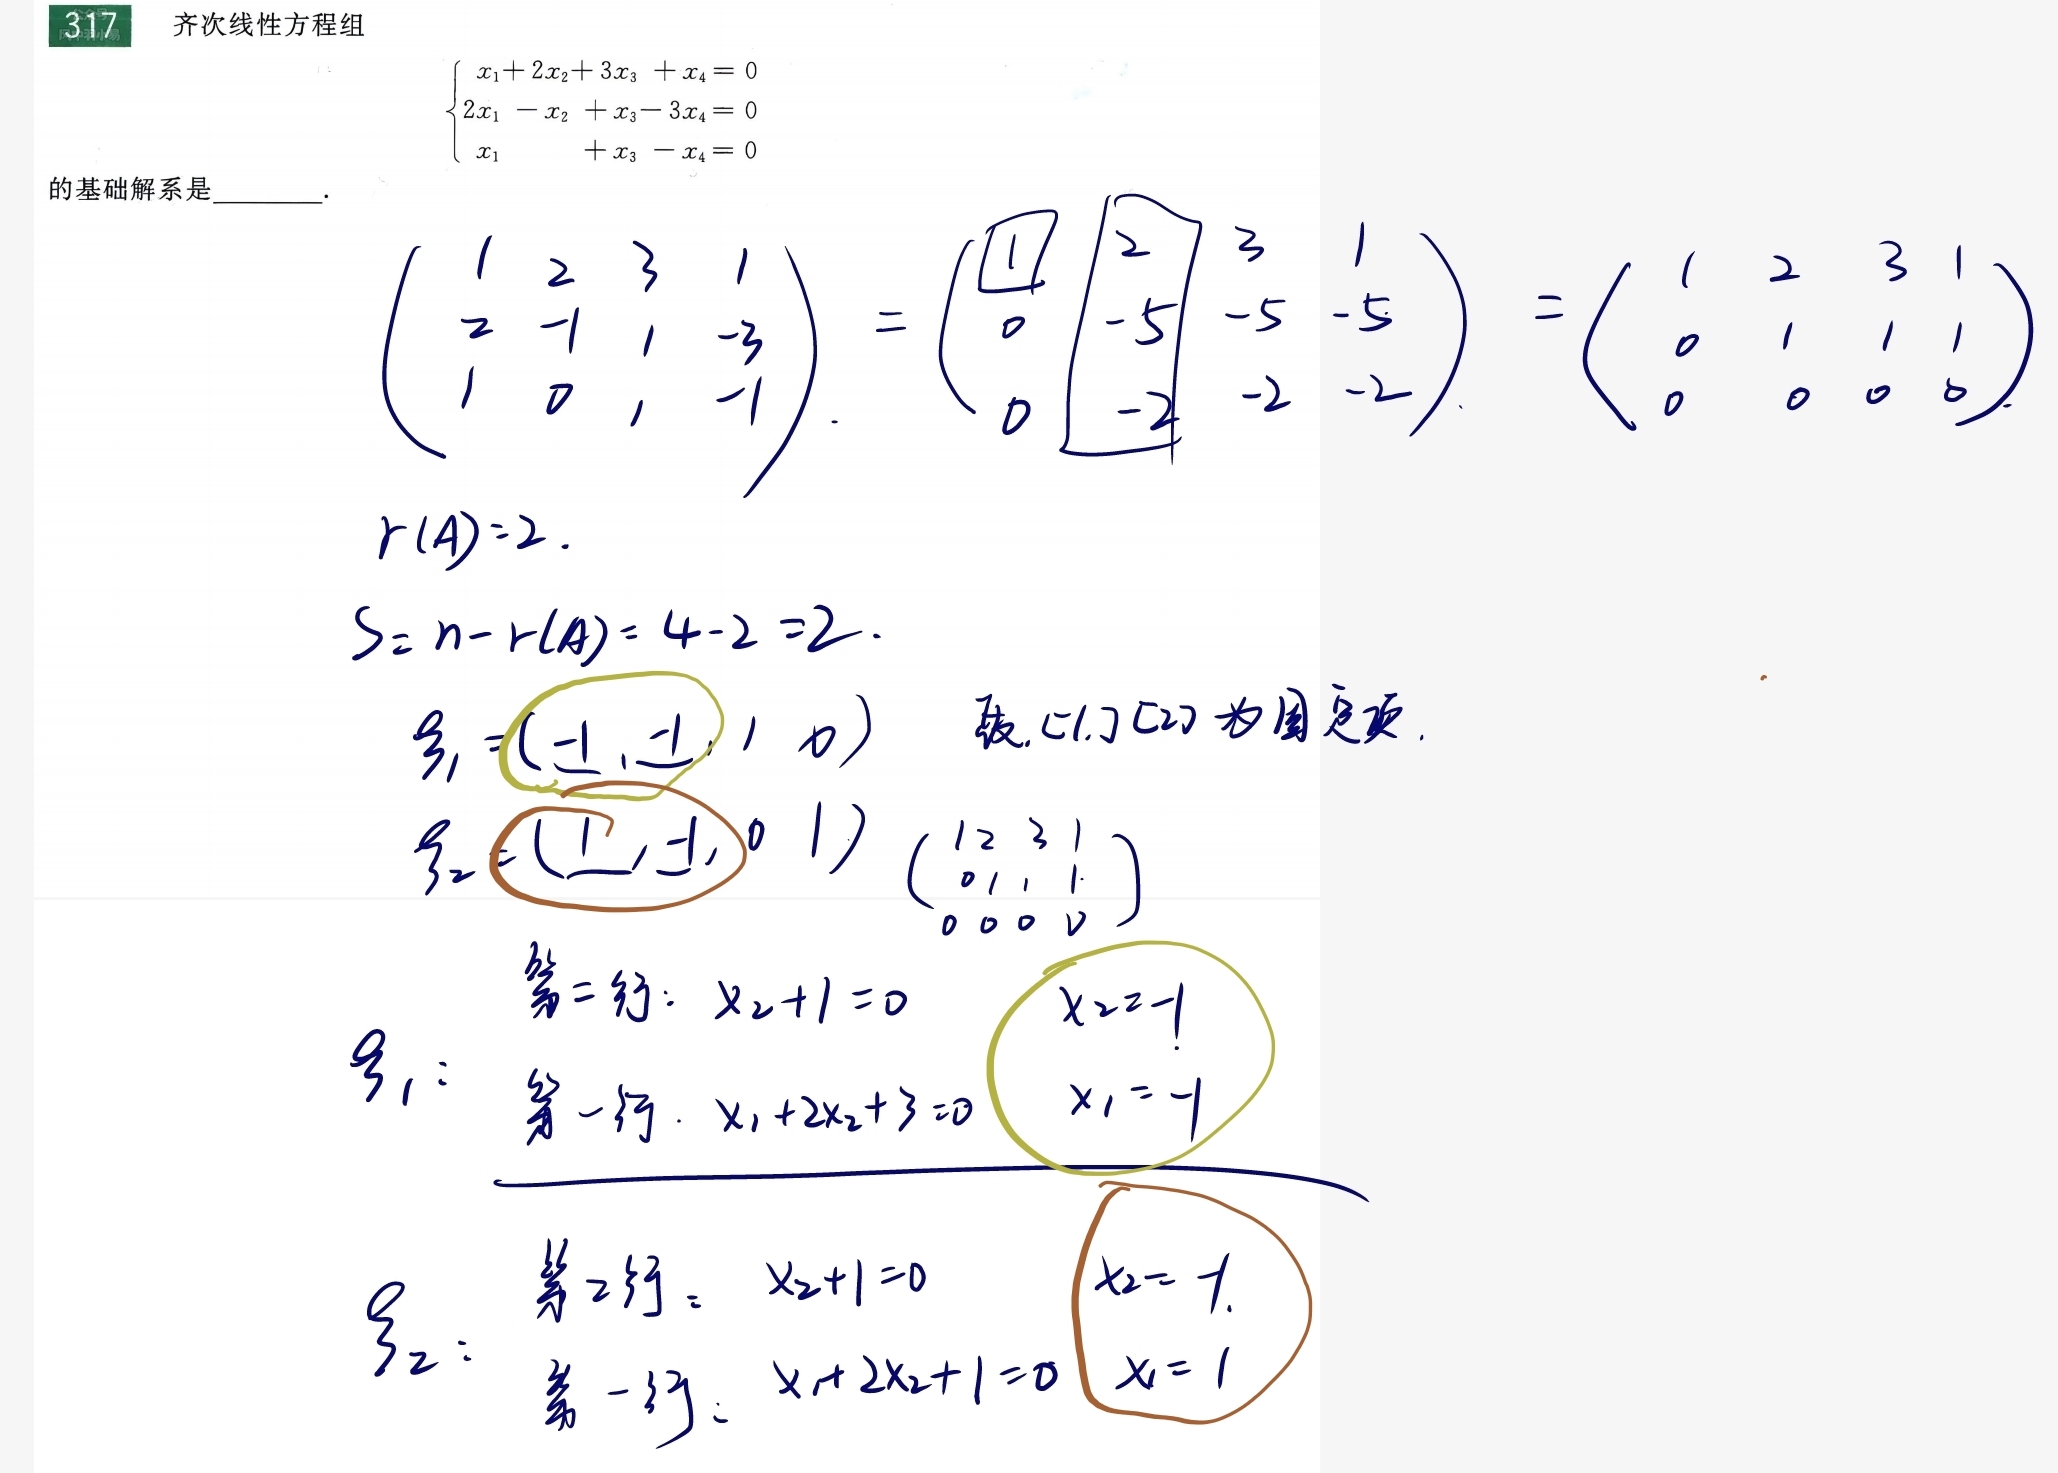 317 齐次线性方程组
x₁+2x₂+3x₃+x₄=0
2x₁-x₂+x₃-3x₄=0
x₁+x₃-x₄=0
的基础解系是________.
(1 2 3 1 = (1 2 3 1 = (1 2 3 1
2 -1 1 -3 0 -5 -5 -5 0 1 1 1
1 0 1 -1). 0 -2 -2 -2). 0 0 0 0).
r(A)=2.
S=n-r(A)=4-2=2.
ξ₁=(-1,-1,1 0) [1.] [2] 为固定项.
ξ₂=(1,-1,0 1)
(1 2 3 1
0 1 1 1
0 0 0 0)
ξ₁:
第二行: x₂+1=0 x₂=-1
第一行. x₁+2x₂+3=0 x₁=-1
ξ₂:
第2行: x₂+1=0 x₂=-1.
第一行: x₁+2x₂+1=0 x₁=1